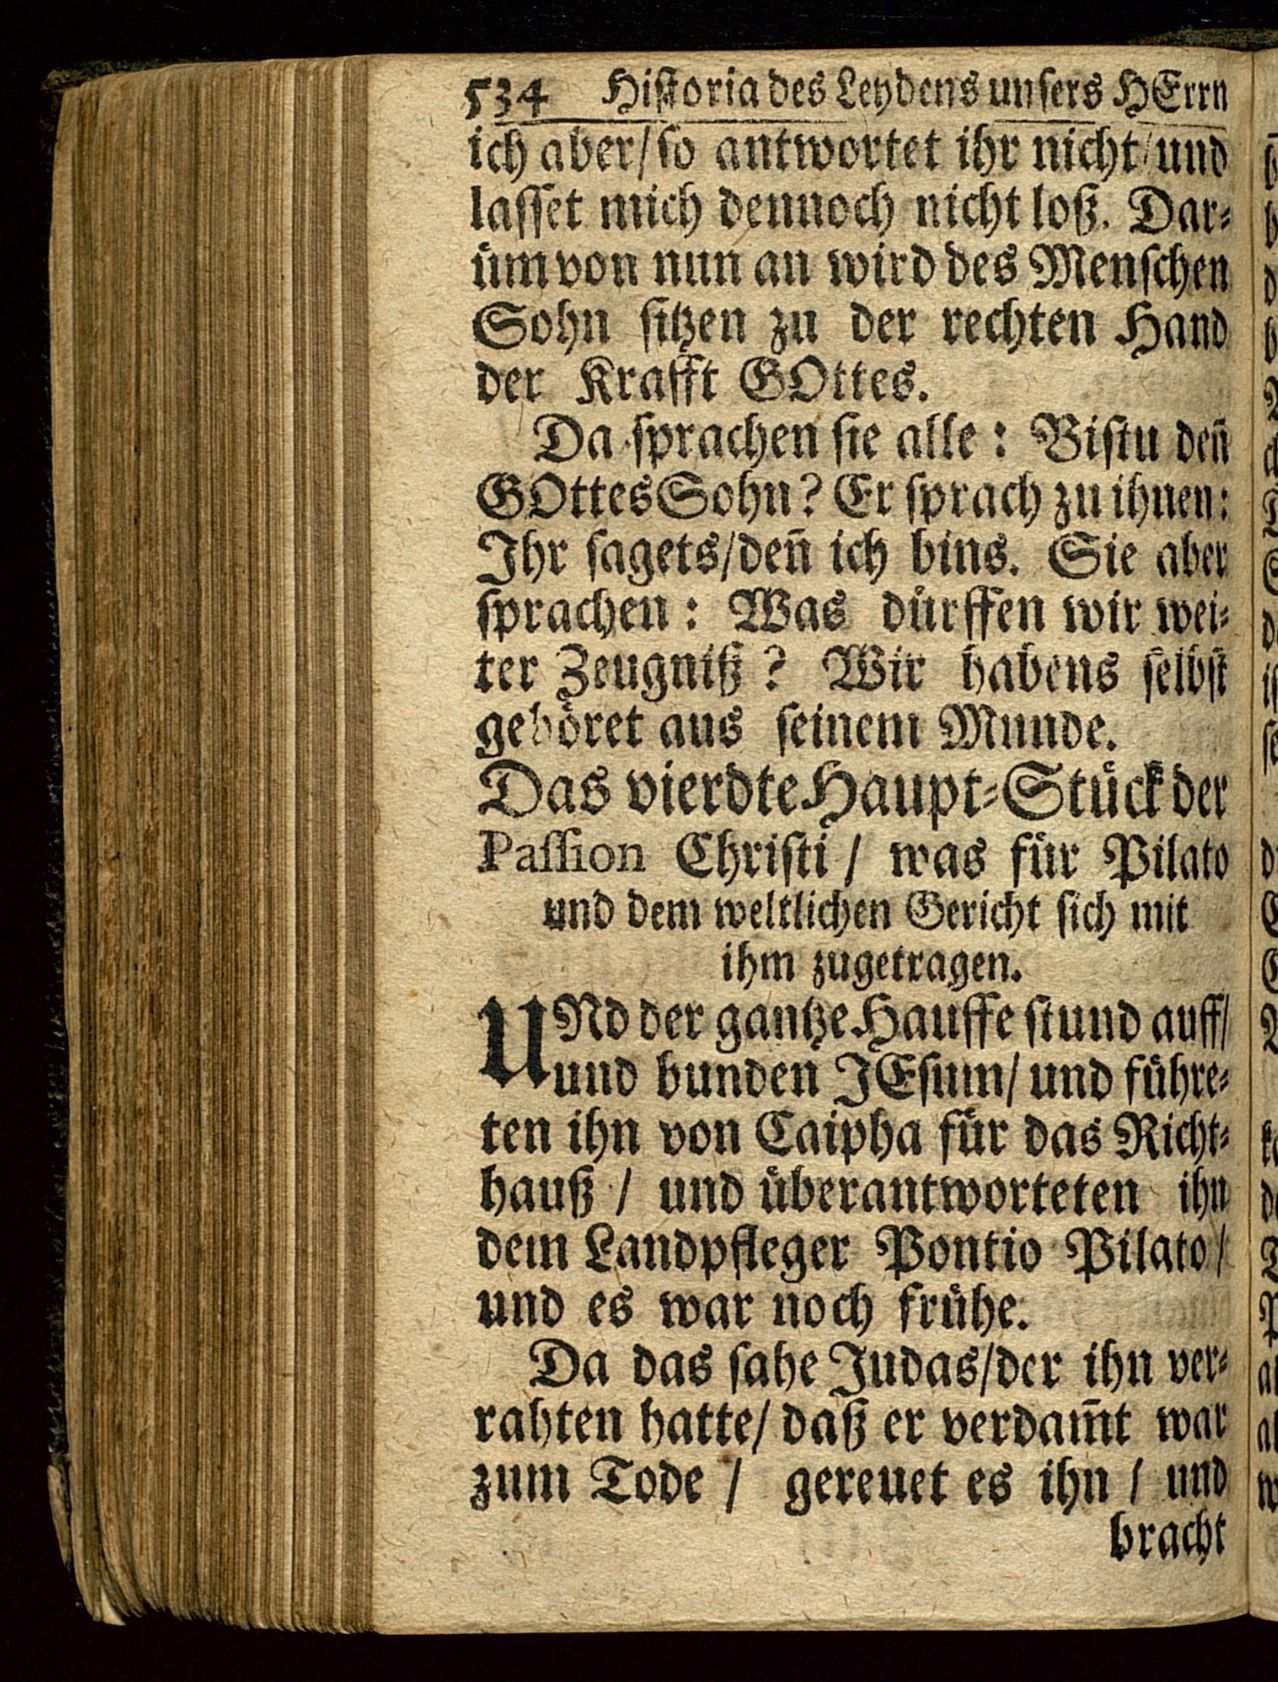 534 Historia des Leydens unsers HErrn
ich aber/ so antwortet ihr nicht/ und
lasset mich dennoch nicht loß. Dar⸗
üm von nun an wird des Menschen
Sohn sitzen zu der rechten Hand
der Krafft GOttes.
Da sprachen sie alle: Bistu deñ
GOttes Sohn? Er sprach zu ihnen:
Ihr sagets/ deñ ich bins. Sie aber
sprachen: Was dürffen wir wei⸗
ter Zeugniß? Wir habens selbst
gehöret aus seinem Munde.
Das vierdte Haupt⸗Stück der
Passion Christi / was für Pilato
und dem weltlichen Gericht sich mit
ihm zugetragen.
UNd der gantze Hauffe stund auff/
und bunden JEsum/ und führe⸗
ten ihn von Caipha für das Richt⸗
hauß / und überantworteten ihn
dem Landpfleger Pontio Pilato/
und es war noch frühe.
Da das sahe Judas/ der ihn ver⸗
rahten hatte/ daß er verdam̃t war
zum Tode / gereuet es ihn / und
bracht